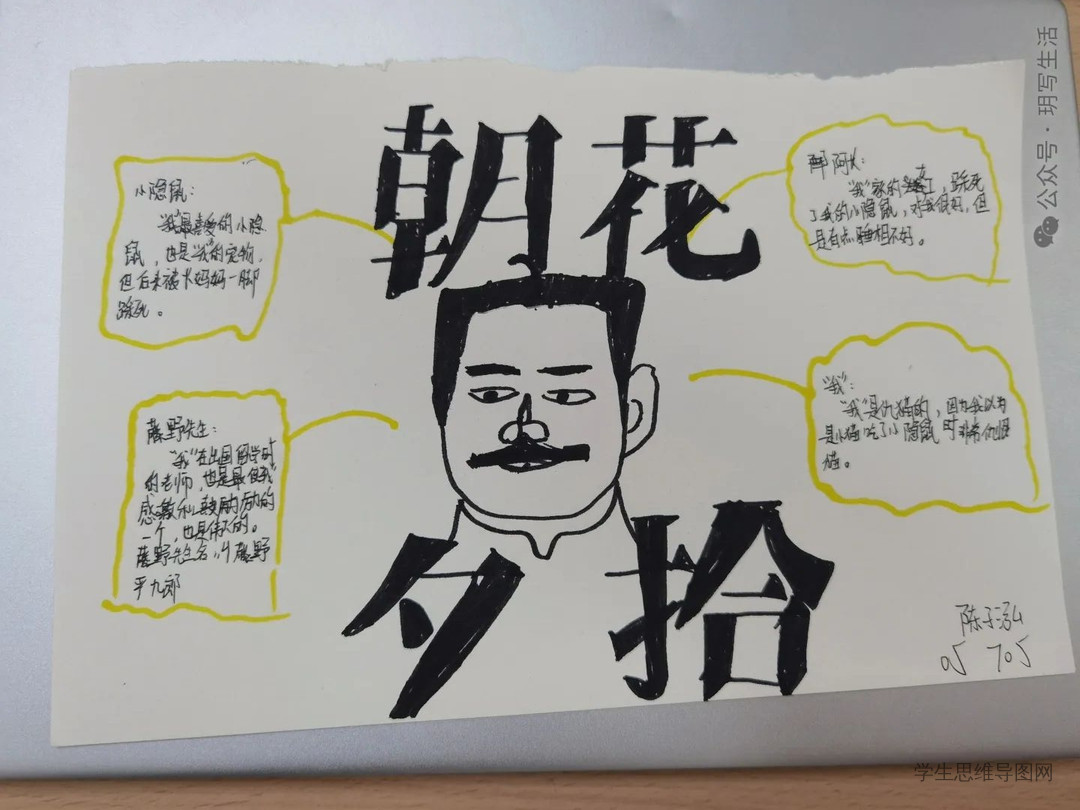 朝花
夕拾
小隐鼠:
"我"最喜爱的小隐
鼠，也是"我"的宠物，
但后来被长妈妈一脚
踩死。
藤野先生:
"我"在出国留学时
的老师，也是最使"我"
感激和鼓励的
一个，也是伟大的。
藤野先生名叫藤野
平九郎
阿长:
"我"家的工，踩死
了我的小隐鼠，对我很好，但
是有点睡相不好。
"我":
"我"是仇猫的，因为我以为
是小猫吃了小隐鼠时非常仇恨
猫。
陈子泓
05 705
公众号·玥写生活
学生思维导图网